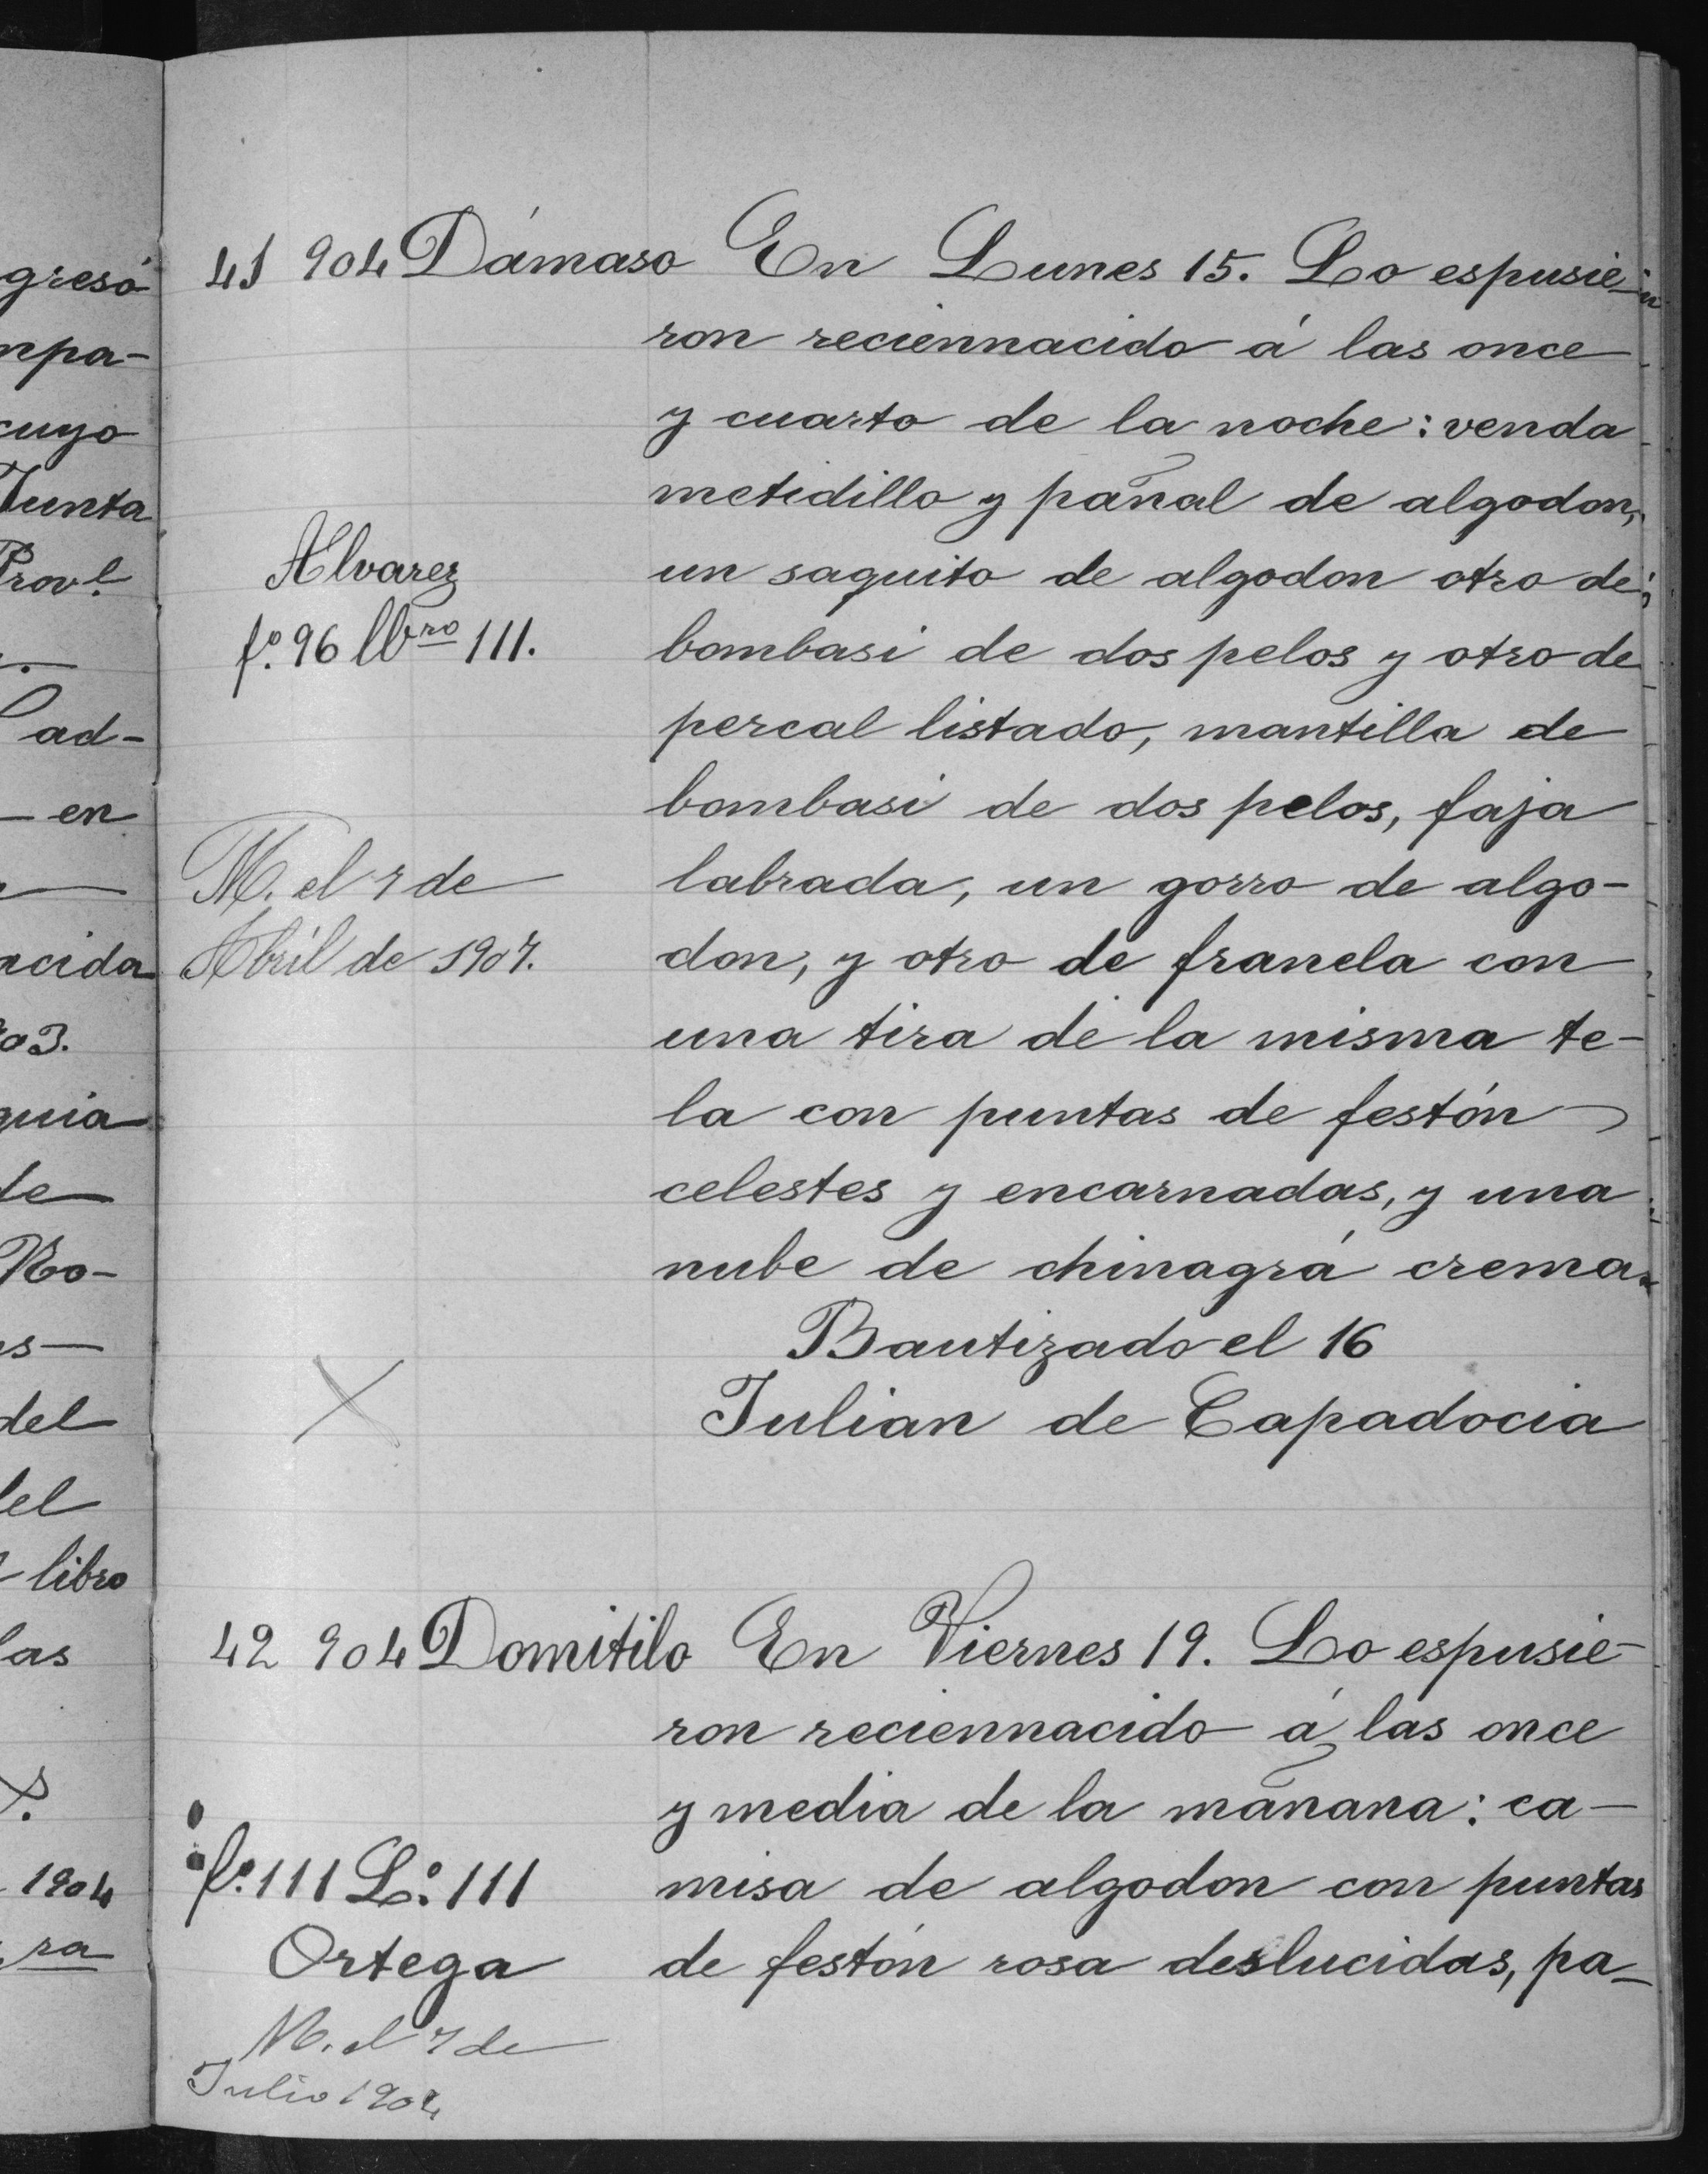 gresó
mpa-
cuyo
Junta
Prov.l
ad-
en
acida
903.
quia
de
No-
s
del
del
libro
las
1904
ra
41 904 Dámaso En Lunes 15. Lo espusie-
ron reciennacido á las once
y cuarto de la noche: venda
metidillo y pañal de algodon,
Alvarez
un saquito de algodon otro de
fº. 96 lbro 111.
bombasi de dos pelos y otro de
percal listado, mantilla de
bombasi de dos pelos, faja
M. el 7 de
labrada, un gorro de algo-
Abril de 1907.
don, y otro de franela con
una tira de la misma te-
la con puntas de festón
celestes y encarnadas, y una
nube de chinagrá crema.
Bautizado el 16
X
Julian de Capadocia
42 904 Domitilo En Viernes 19. Lo espusie-
ron reciennacido á las once
y media de la mañana: ca-
fº. 111 Lº. 111
misa de algodon con puntas
Ortega
de festón rosa deslucidas, pa-
M. el 7 de
Julio 1904